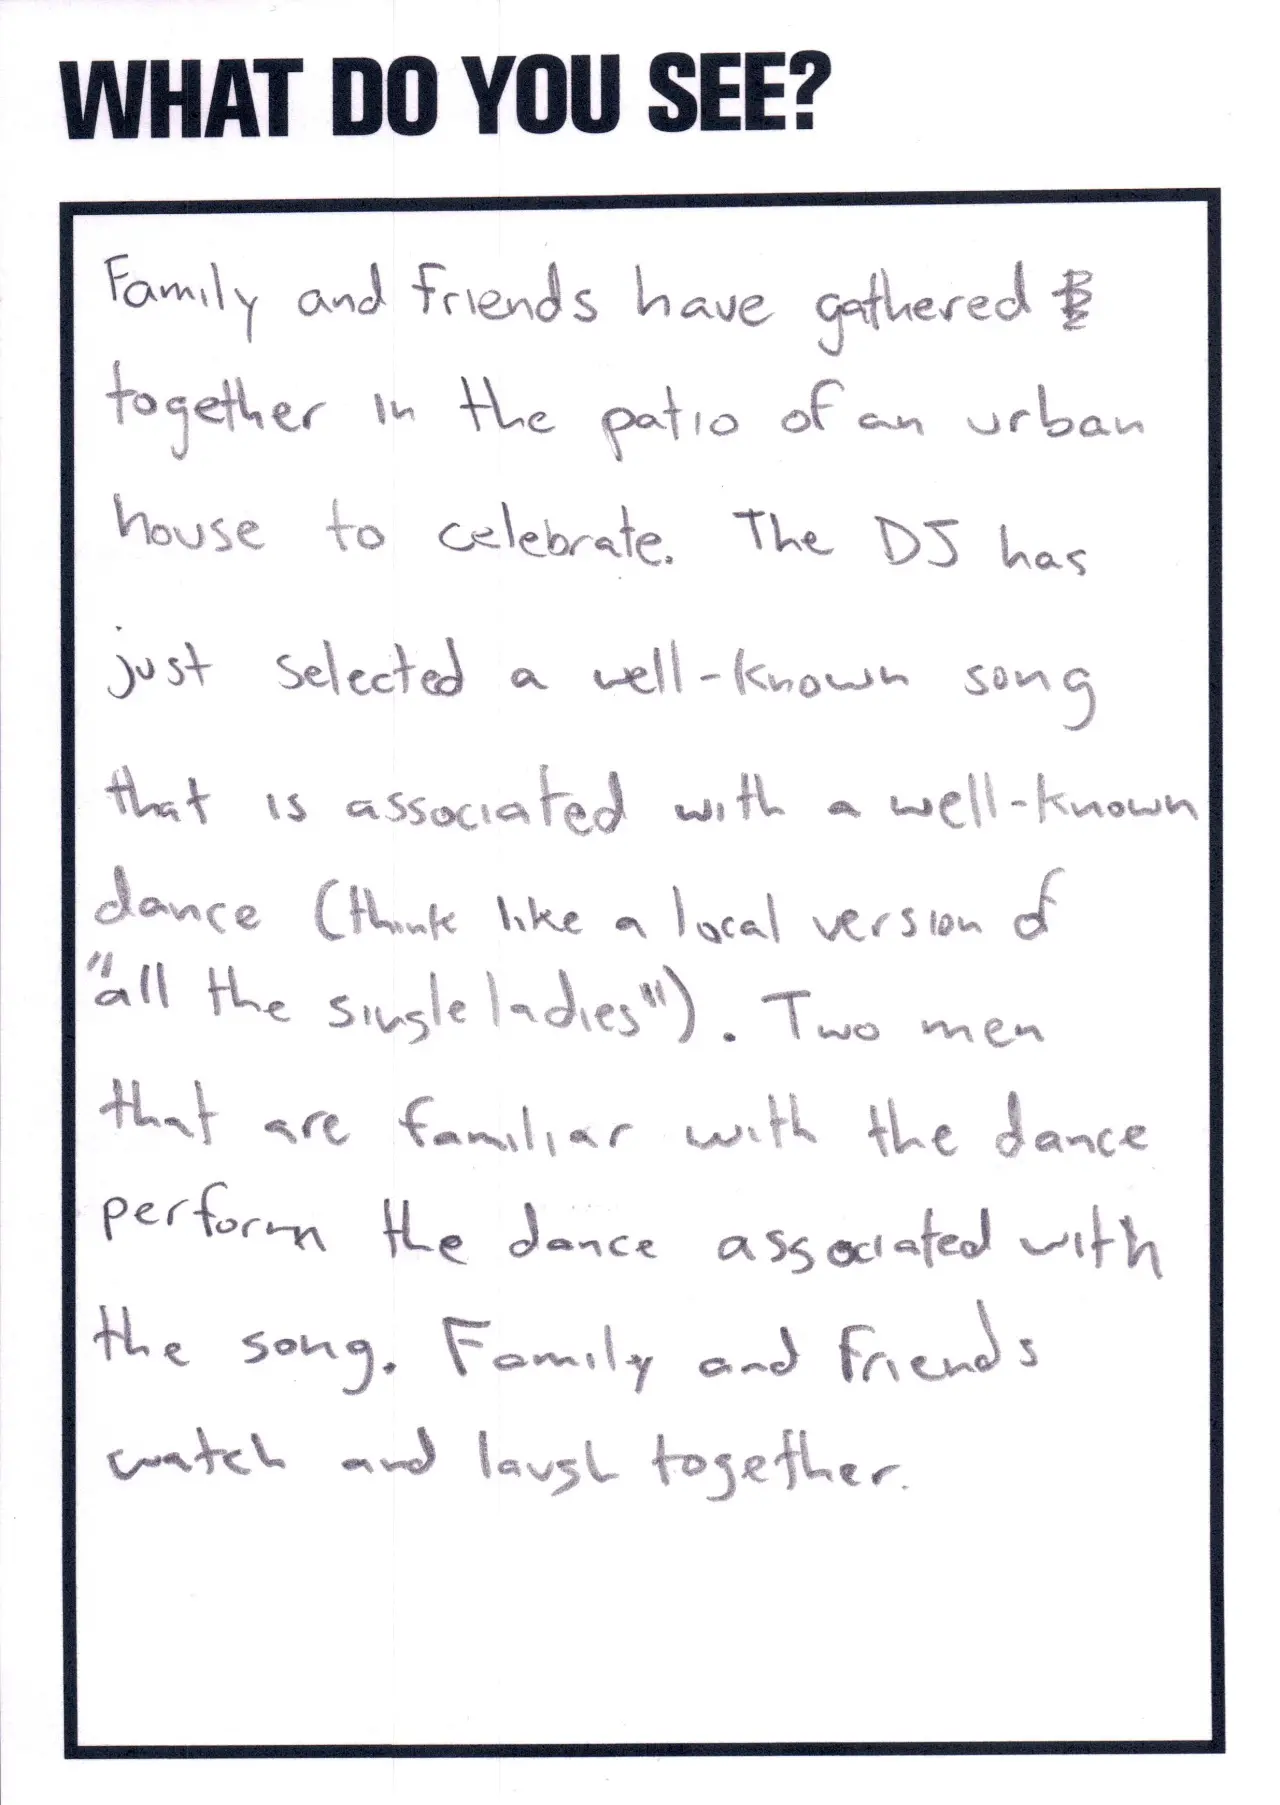 WHAT DO YOU SEE?
Family and friends have gathered
together in the patio of an urban
house to celebrate. The DJ has
just selected a well-known song
that is associated with a well-known
dance (think like a local version of
"all the single ladies"). Two men
that are familiar with the dance
perform the dance associated with
the song. Family and friends
watch and laugh together.